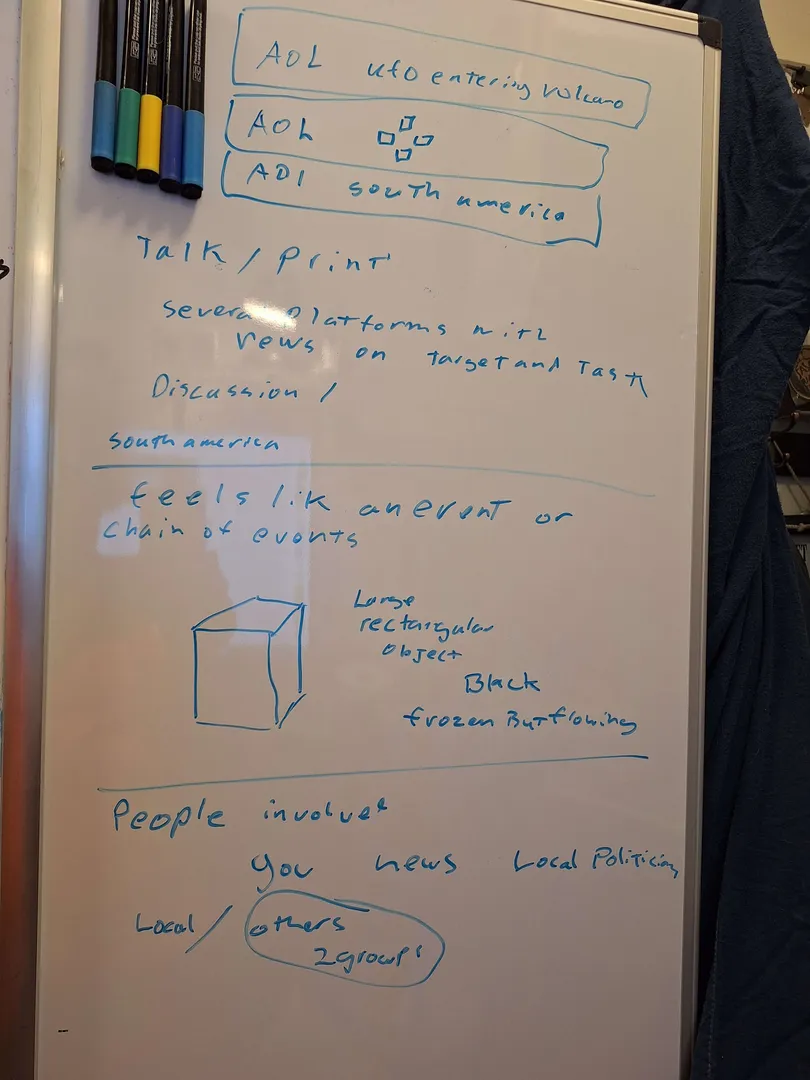 AOL ufo entering vulcano
AOL
AOI south america
Talk / print
several platforms with
news on target and task
Discussion /
south america
feels lik an event or
chain of events
Large
rectangular
object
Black
frozen But flowing
People involved
gov news Local Politicians
Local / others
2 groups